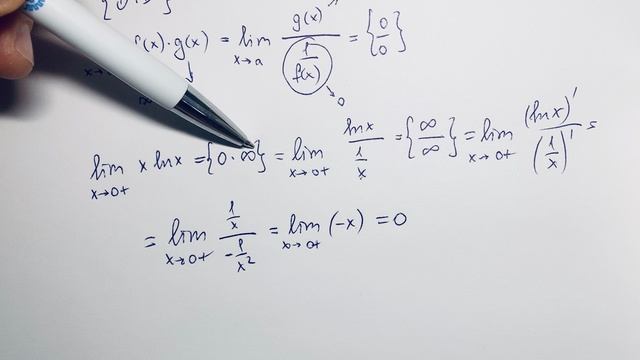 f(x)·g(x) = lim x→a g(x) / (1/f(x)) = {0/0}
→0
lim x→0+ x ln x = {0·∞} = lim x→0+ ln x / (1/x) = {∞/∞} = lim x→0+ (ln x)' / (1/x)' =
= lim x→0+ (1/x) / (-1/x²) = lim x→0+ (-x) = 0